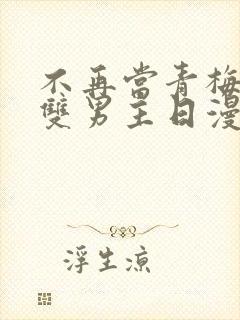 不再當青梅
雙男主日漫
浮生涼